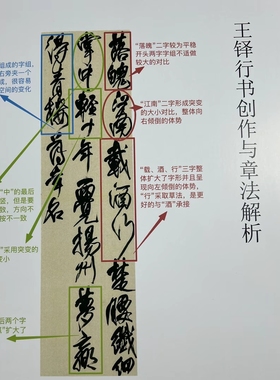 王铎行书创作与章法解析
落魄江南载酒行楚腰纤细
掌中轻十年一觉扬州梦赢
得青楼薄幸名
“落魄”二字较为平稳
开头两字字组不适做
较大的对比
“江南”二字形成突变
的大小对比，整体向
右倾倒的体势
“载、酒、行”三字整
体扩大了字形并且呈
现向左倾倒的体势，
“行”采取草法，是更
好的与“酒”承接
组成的字组，
右旁夹一个
成，很容易
空间的变化
“中”的最后
竖，但是要
致，方向不
按不一致
”采用突变的
变小
后两个字
扩大了